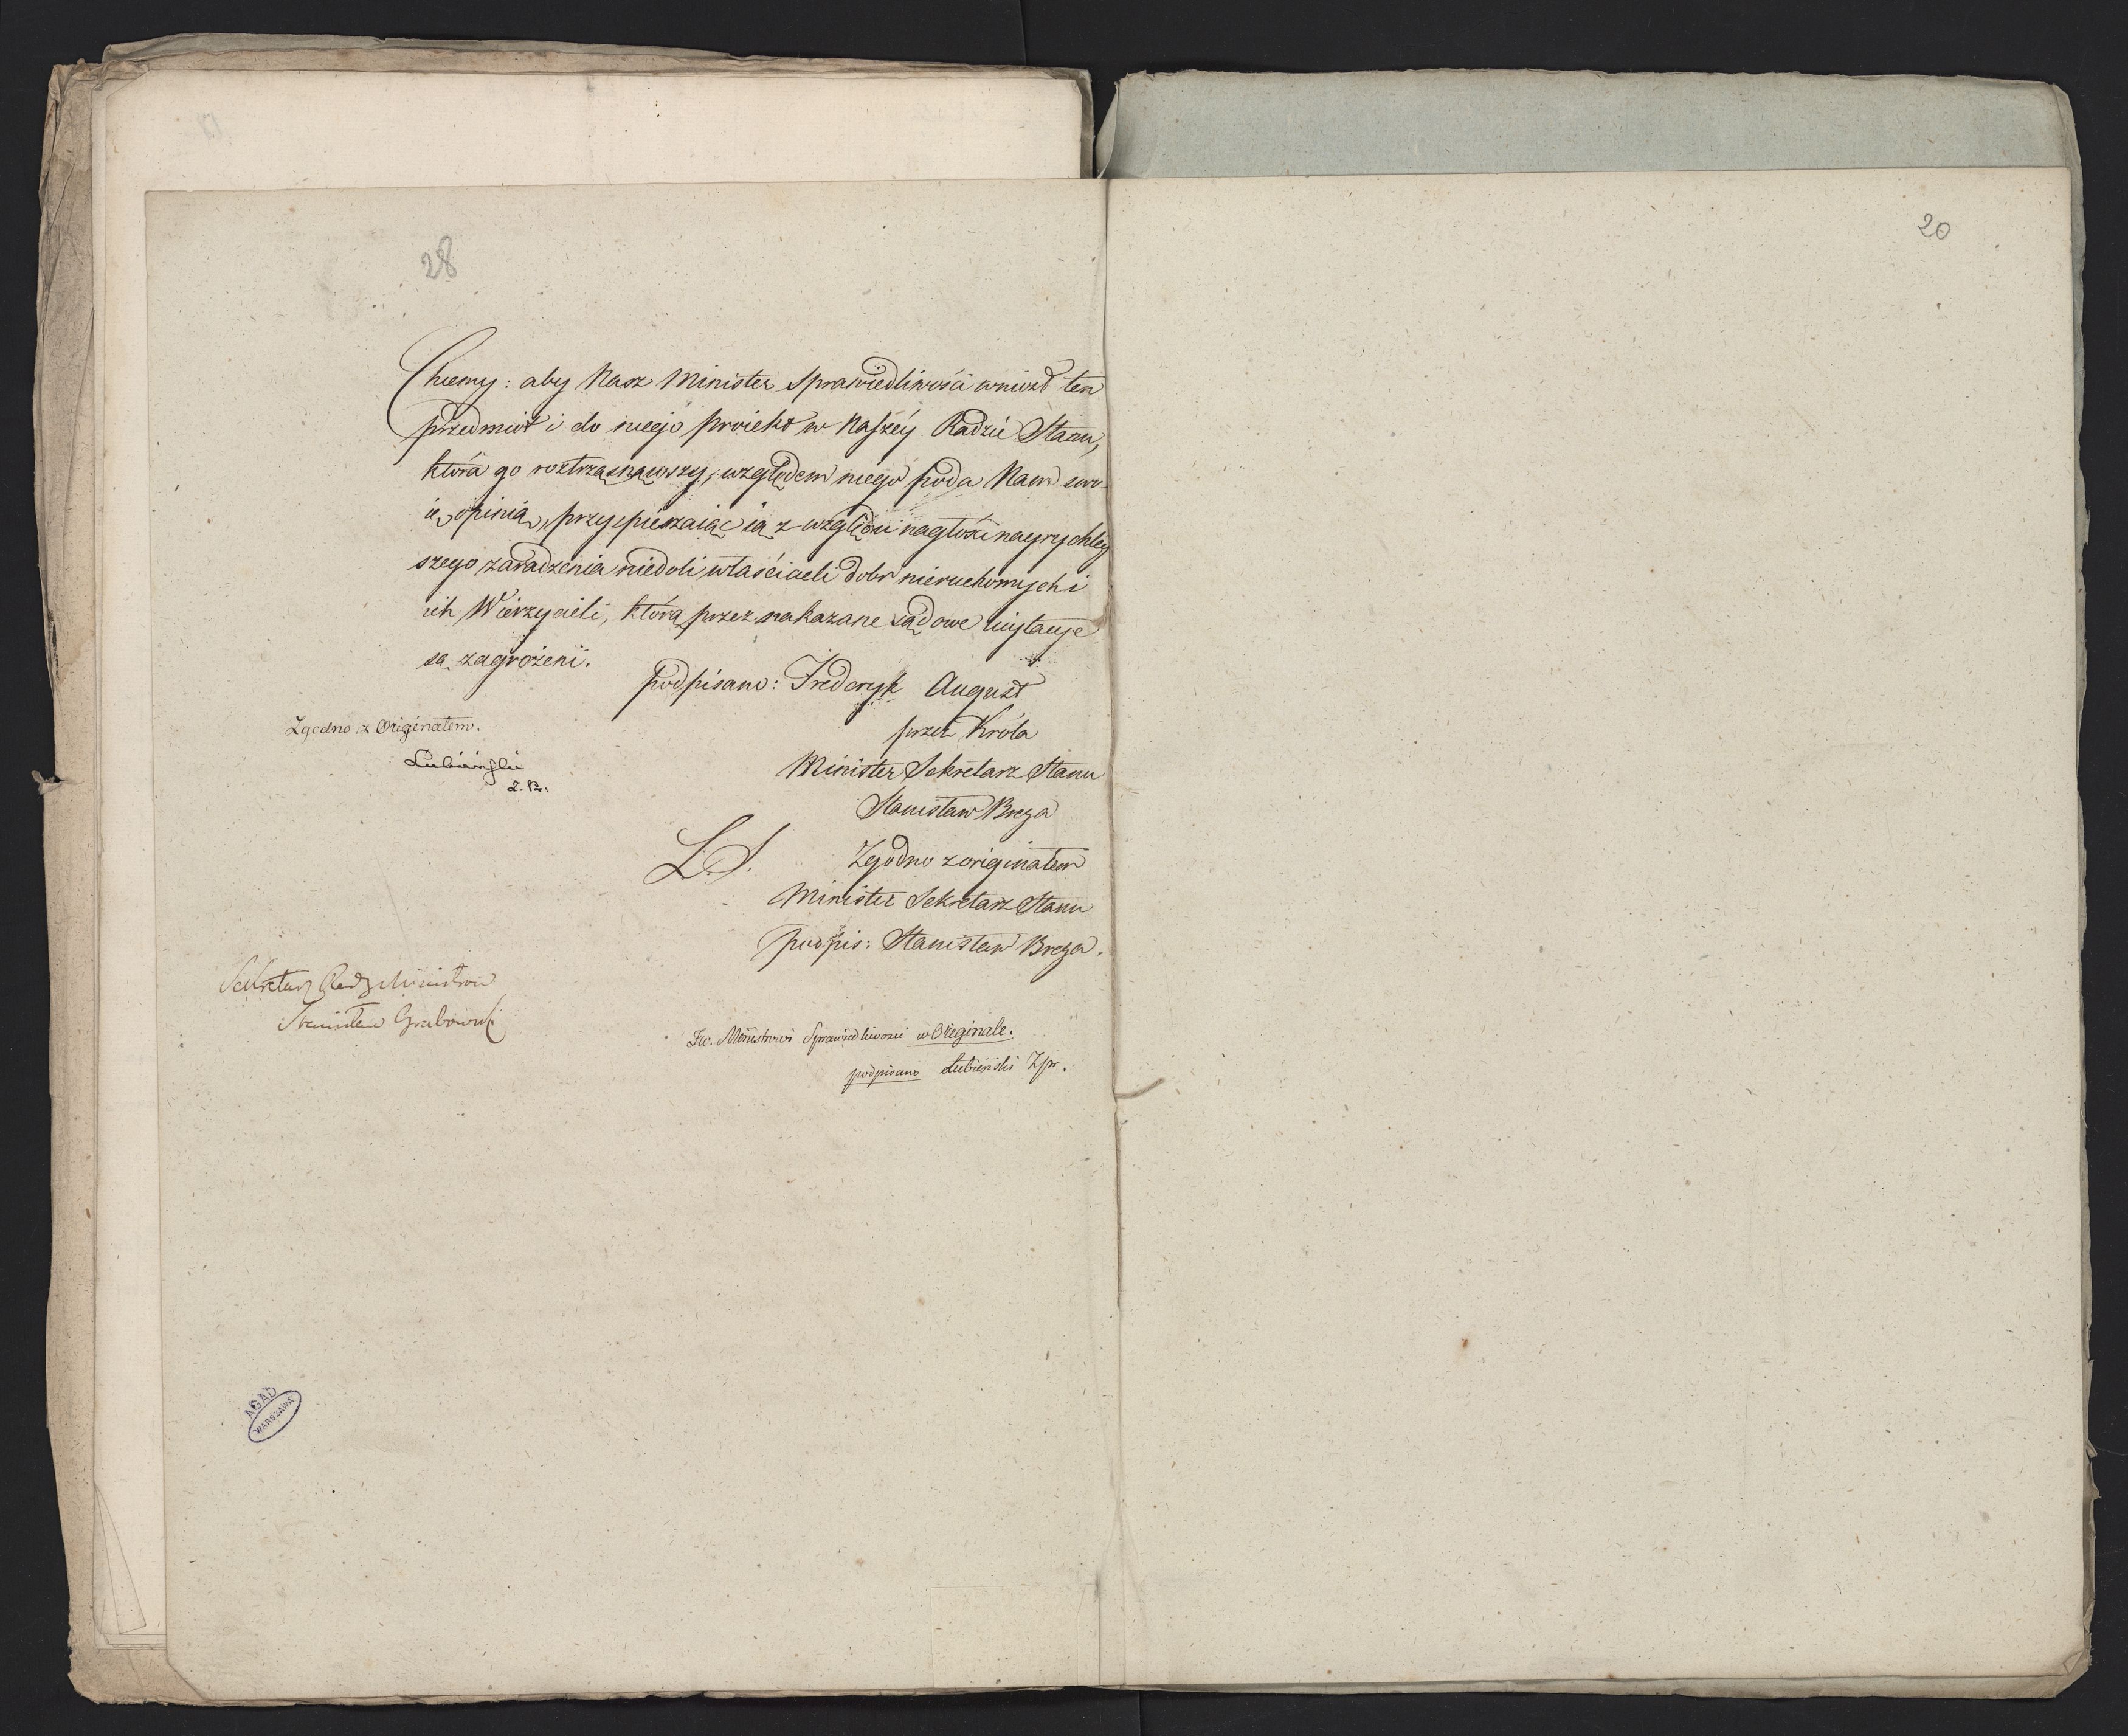 28
20
Chcemy: aby Nasz Minister Sprawiedliwości wniósł ten
przedmiot i do niego proiekt w Naszéy Radzie Stanu,
która go roztrząsnąwszy, względem niego poda Nam swo-
ię opinią, przyspieszaiąc ią z względu nagłości nayrychley
szego zaradzenia niedoli właścicieli dobr nieruchomych i
ich Wierzycieli, którą przez nakazane sądowe licytacye
są zagrożeni.
podpisano: Frederyk August
przez Króla
Minister Sekretarz Stanu
Stanisław Breza
L.S. Zgodno z originałem
Minister Sekretarz Stanu
podpis: Stanisław Breza.
Zgodno z Originałem.
Lubieński
Sekretarz Rady Ministrow
Stanisław Grabowski
JW. Ministrowi Sprawiedliwości w Originale.
podpisano Lubieński Zpr.
AGAD
WARSZAWA